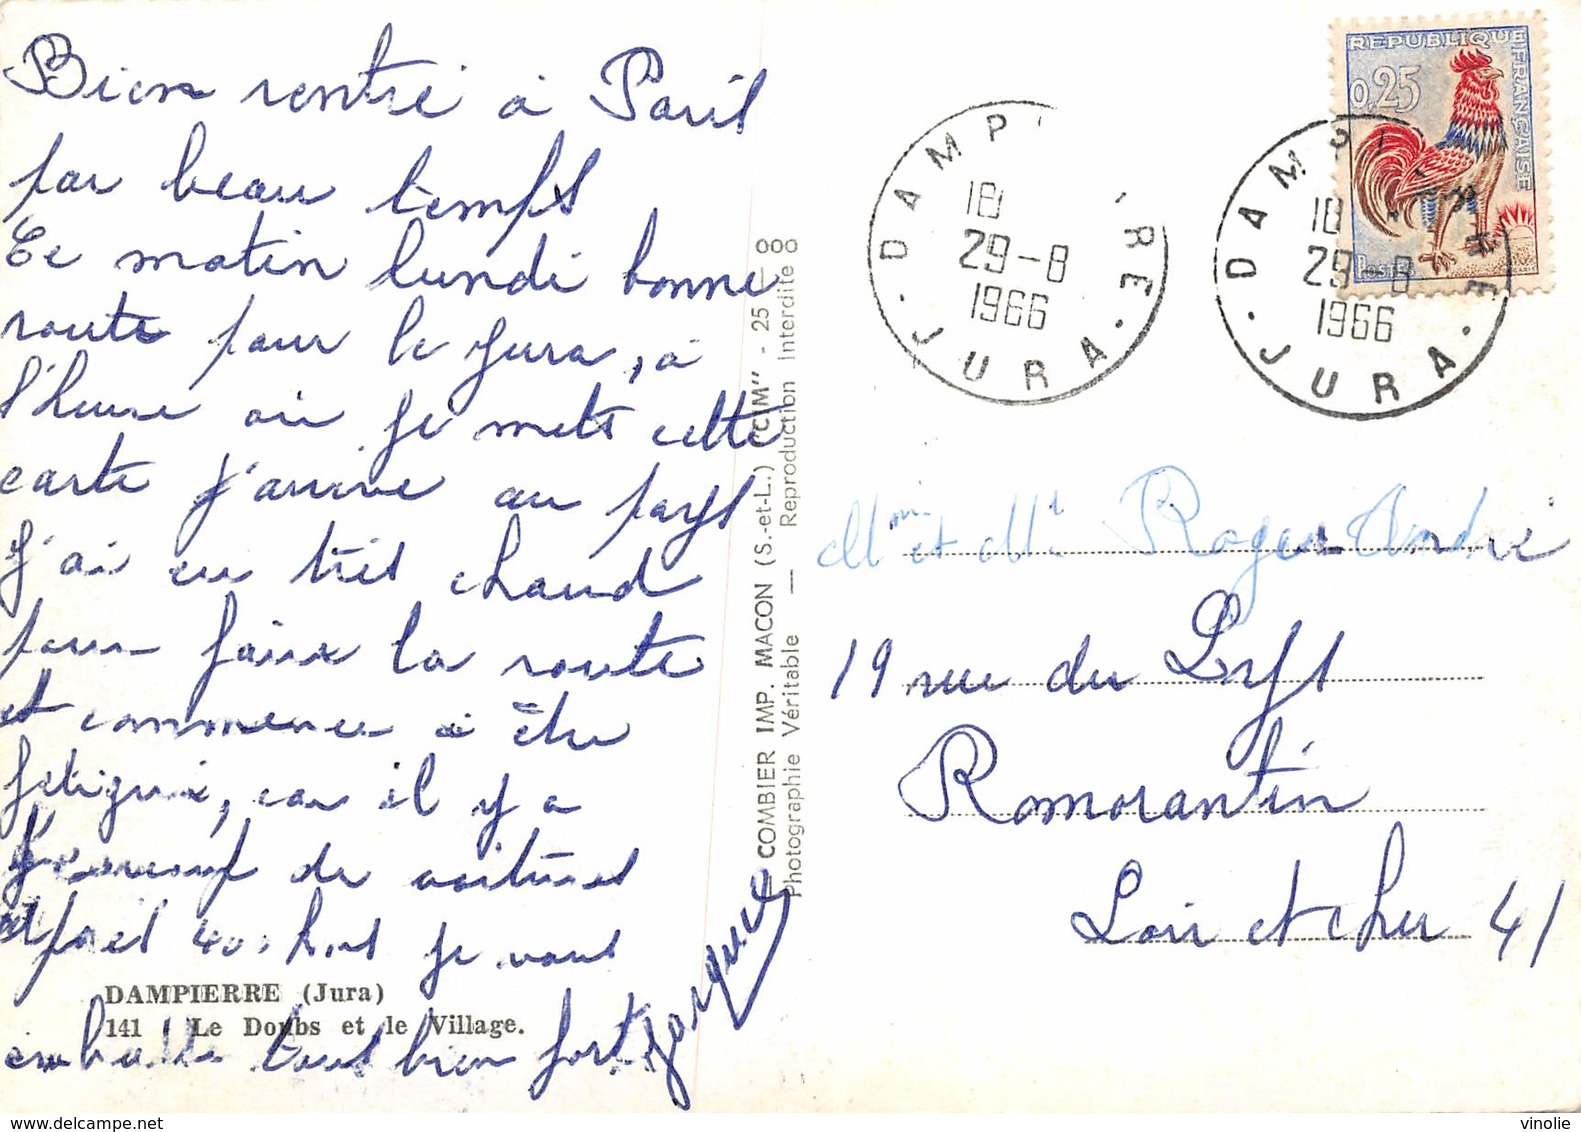 Bien rentré à Paris
par beau temps
Ce matin lundi bonne
route pour le Jura, à
l'heure où je mets cette
carte j'arrive au pays
J'ai eu très chaud
pour faire la route
et commence à être
fatigué, car il y a
de voitures
après 40. je vous
embrasse tous bien fort
Jacques
DAMPIERRE (Jura)
141 Le Doubs et le Village.
COMBIER IMP. MACON (S.-et-L.) "CIM" - 25
Photographie Véritable — Reproduction Interdite
REPUBLIQUE FRANÇAISE
0,25
POSTES
DAMPIERRE
18
29-8
1966
JURA
DAMPIERRE
18
29-8
1966
JURA
Mme et Mr Roger André
19 rue du Lys
Romorantin
Loir et cher 41
vinolie